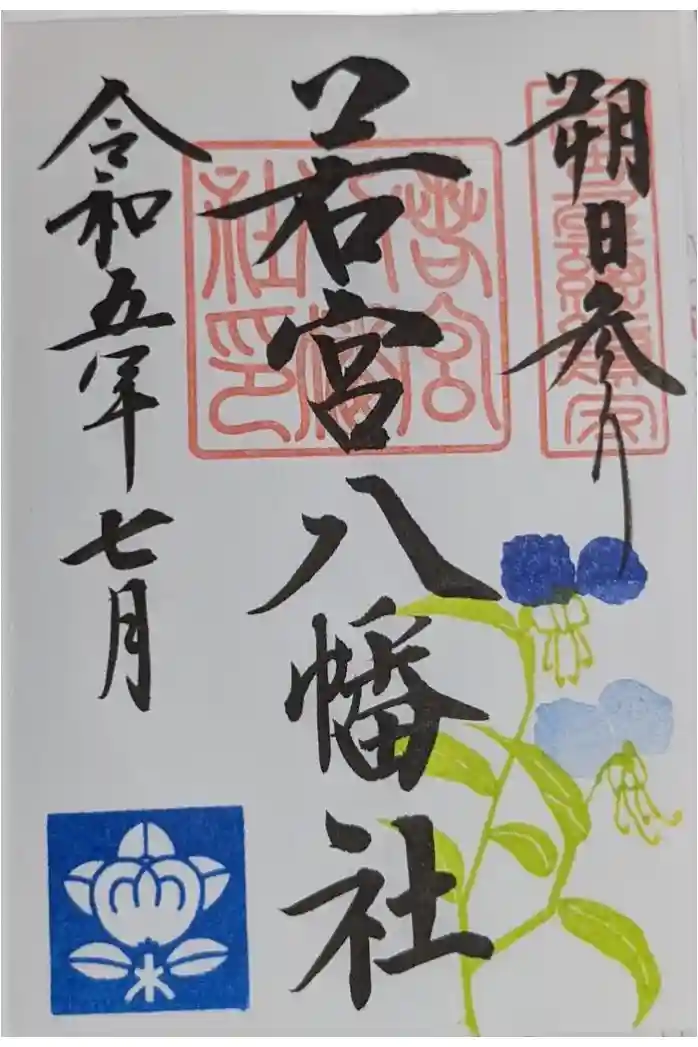 朔日参り
若宮八幡社
令和五年七月
若宮
八幡
社印